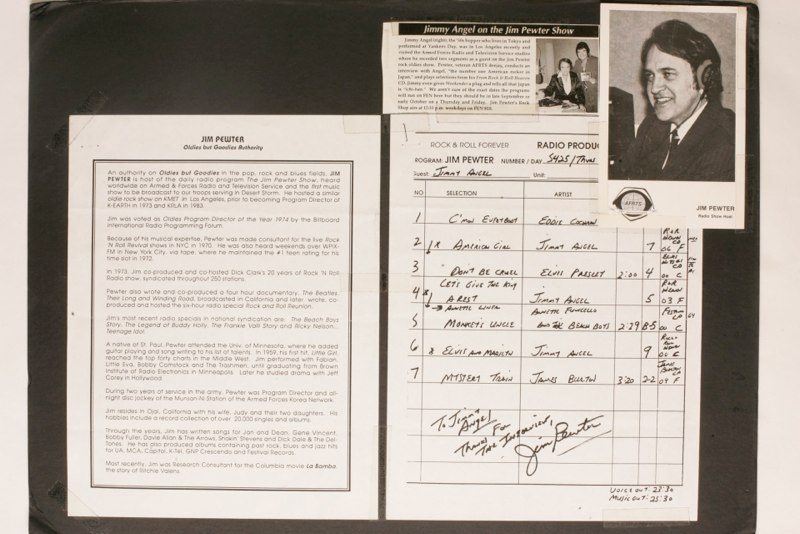 Jimmy Angel on the Jim Pewter Show
Jimmy Angel (right), the '50s bopper who lives in Tokyo and
performed at Yankees Day, was in Los Angeles recently and
visited the Armed Forces Radio and Television Service studios
where he recorded two segments as a guest on the Jim Pewter
rock oldies show. Pewter, veteran AFRTS deejay, conducts an
interview with Angel, "the number one American rocker in
Japan," and plays selections from his
CD. Jimmy even gives a plug and tells all that Japan
is
run on FEN here but they should be in late September or
early October on a Thursday and Friday. Jim Pewter's Rock
Shop airs at weekdays on FEN 810.
JIM PEWTER
Radio Show Host
AFRTS
JIM PEWTER
Oldies but Goodies Authority
An authority on Oldies but Goodies in the pop, rock and blues fields, JIM
PEWTER is host of the daily radio program The Jim Pewter Show, heard
worldwide on Armed & Forces Radio and Television Service and the first music
show to be broadcast to our troops serving in Desert Storm. He hosted a similar
oldie rock show on KMET in Los Angeles, prior to becoming Program Director of
K-EARTH in 1973 and KRLA in 1983.
Jim was voted as Oldies Program Director of the Year 1974 by the Billboard
International Radio Programming Forum.
Because of his musical expertise, Pewter was made consultant for the live Rock
N Roll Revival shows in NYC in 1970. He was also heard weekends over WPIX-
FM in New York City, via tape, where he maintained the #1 teen rating for his
time slot in 1972.
In 1973, Jim co-produced and co-hosted Dick Clark's 20 years of Rock N Roll
Radio show, syndicated throughout 250 stations.
Pewter also wrote and co-produced a four hour documentary, The Beatles,
Their Long and Winding Road, broadcasted in California and later wrote, co-
produced and hosted the six-hour radio special Rock and Roll Reunion.
Jim's most recent radio specials in national syndication are: The Beach Boys
Story, The Legend of Buddy Holly, The Frankie Valli Story and Ricky Nelson...
Teenage Idol.
A native of St. Paul, Pewter attended the Univ. of Minnesota, where he added
guitar playing and song writing to his list of talents. In 1959, his first hit, Little Girl,
reached the top forty charts in the Middle West. Jim performed with Fabian,
Little Eva, Bobby Comstock and The Trashmen, until graduating from Brown
Institute of Radio Electronics in Minneapolis. Later he studied drama with Jeff
Corey in Hollywood.
During two years of service in the army, Pewter was Program Director and all-
night disc jockey of the Munsan-Ni Station of the Armed Forces Korea Network.
Jim resides in Ojai, California with his wife, Judy and their two daughters. His
hobbies include a record collection of over 20,000 singles and albums.
Through the years, Jim has written songs for Jan and Dean, Gene Vincent,
Bobby Fuller, Davie Allan & The Arrows, Shakin' Stevens and Dick Dale & The Del-
Tones. He has also produced albums containing past rock, blues and jazz hits
for UA, MCA, Capitol, K-Tel, GNP Crescendo and Festival Records.
Most recently, Jim was Research Consultant for the Columbia movie La Bamba,
the story of Ritchie Valens.
ROCK & ROLL FOREVER RADIO PRODU
ROGRAM: JIM PEWTER NUMBER/DAY S425/THUR
Guest: JIMMY ANGEL Unit:
NO SELECTION ARTIST
1 C'MON EVERYBODY EDDIE COCHRAN
2 AMERICAN GIRL JIMMY ANGEL 7
3 DON'T BE CRUEL ELVIS PRESLEY 2:00 4
4 LET'S GIVE THE KING
A REST JIMMY ANGEL 5 03 F
ANNETTE FUNICELLO
5 MONKEY'S UNCLE AND THE BEACH BOYS 2:29 B-5 00 C
6 ELVIS AND MARILYN JIMMY ANGEL 9
7 MYSTERY TRAIN JAMES BURTON 3:20 2-2 09 F
To Jimmy
Angel
Thanks For
The Interview,
Jim Pewter
VOICE OUT: 23:30
MUSIC OUT: 25:30